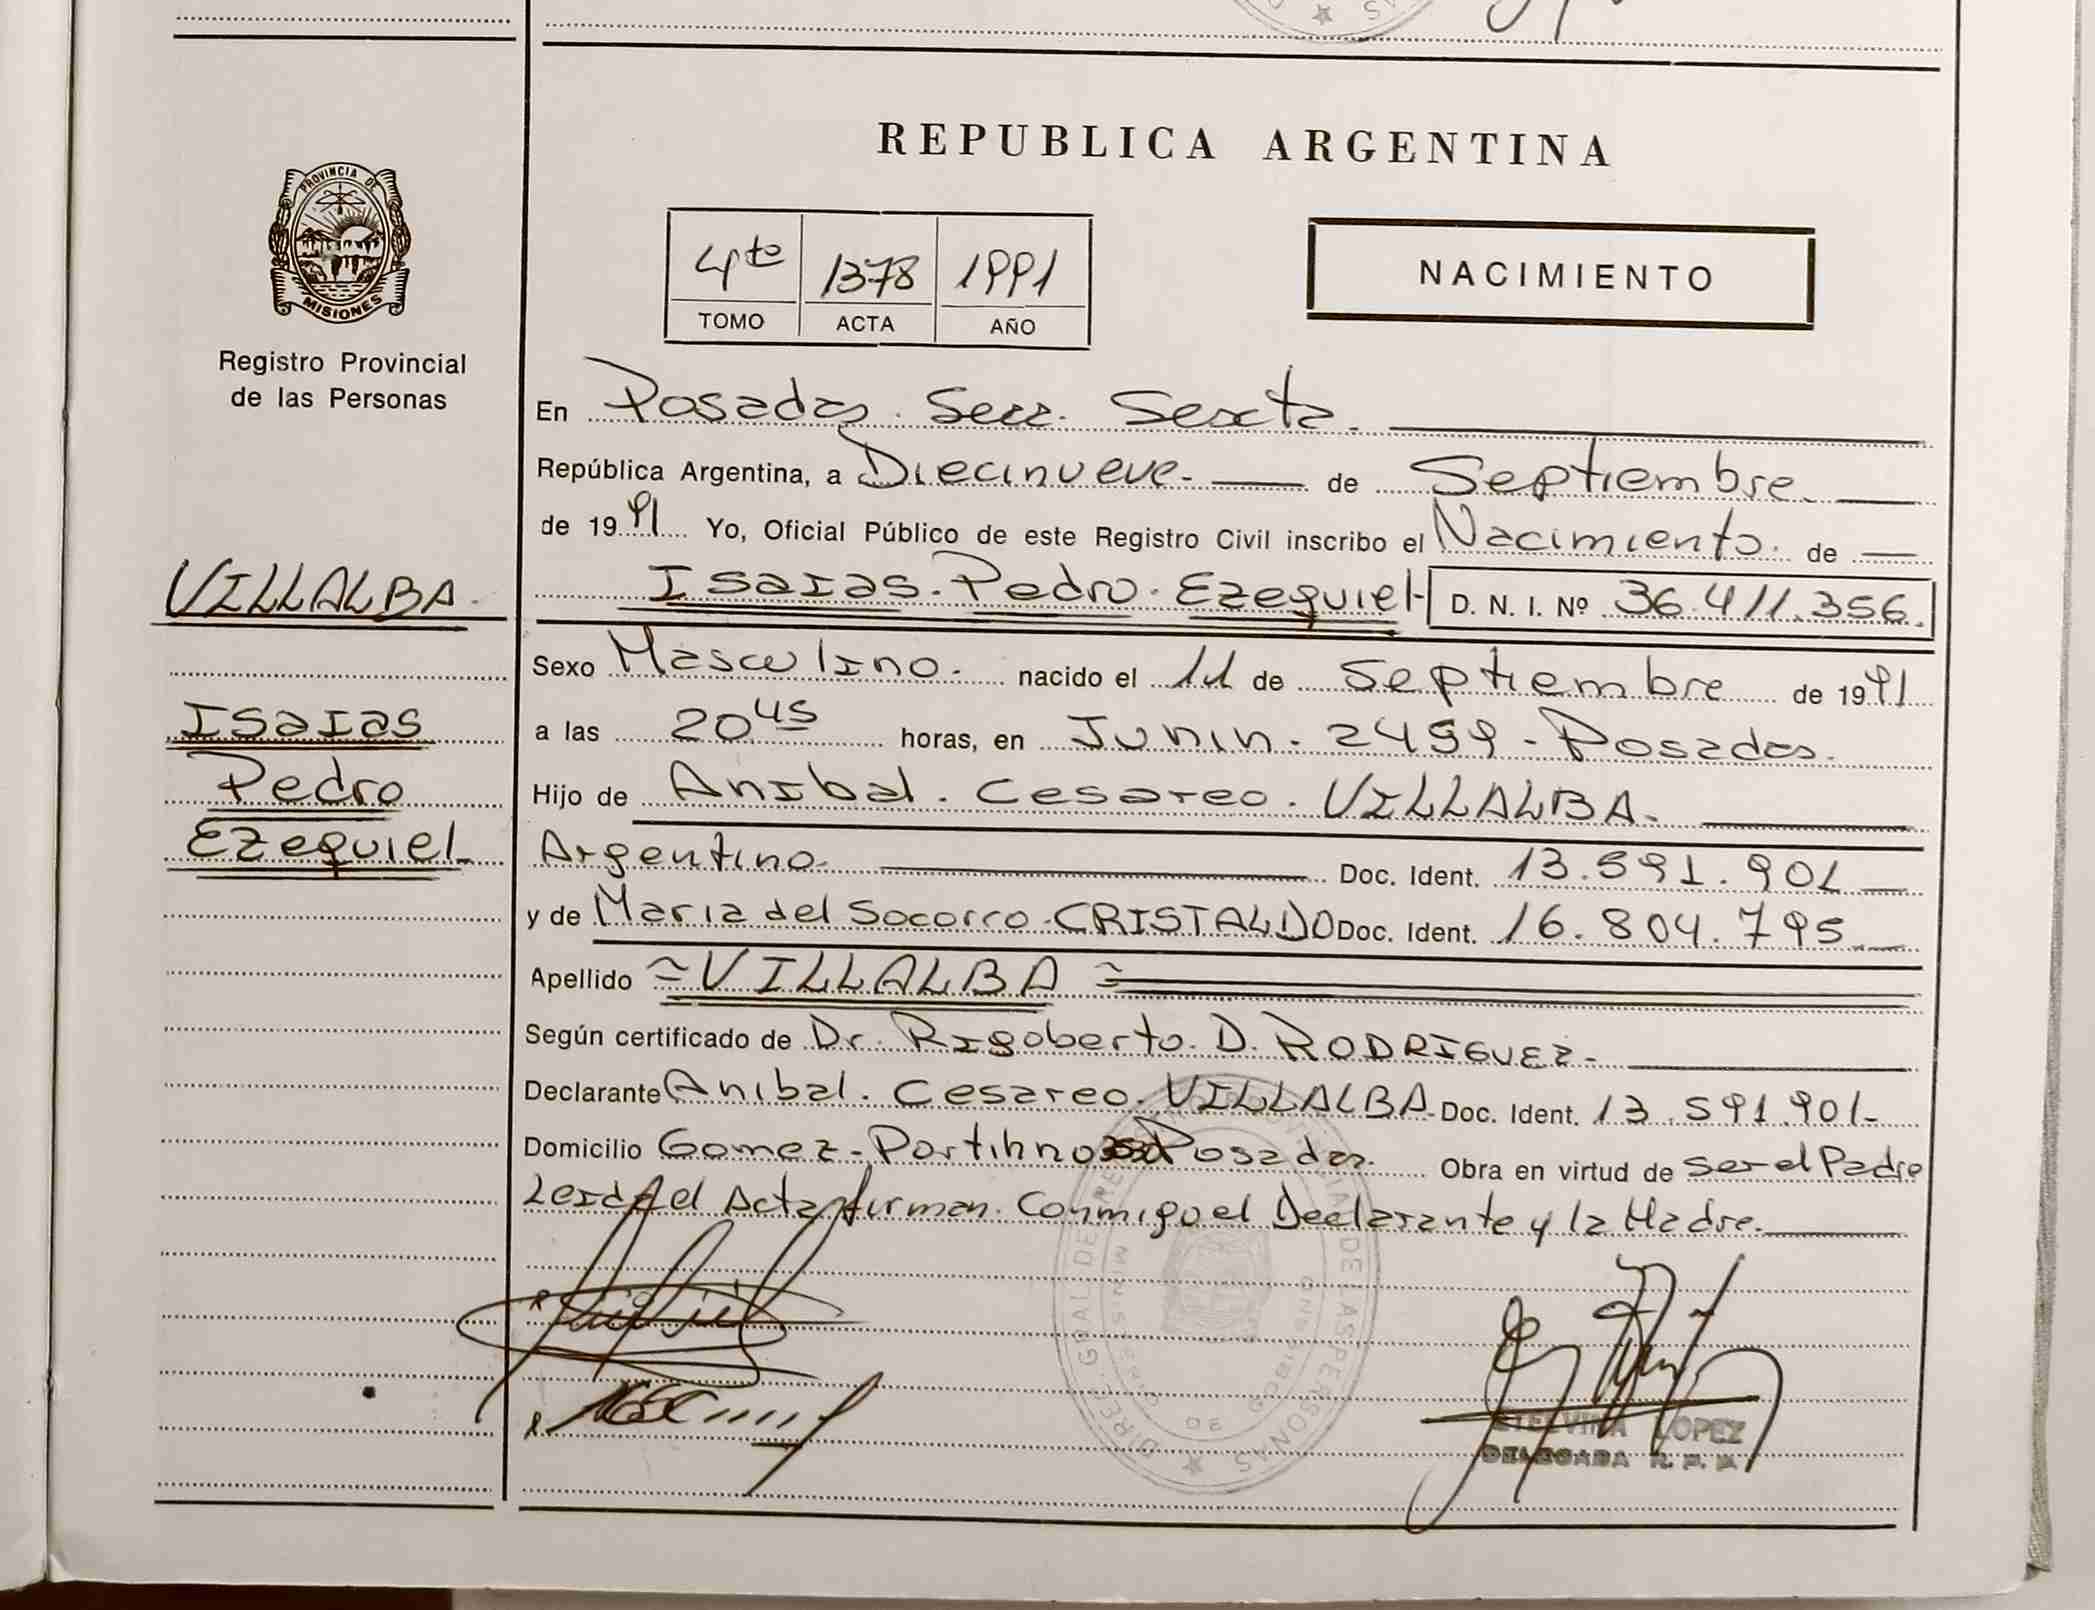 REPUBLICA ARGENTINA
PROVINCIA DE
MISIONES
Registro Provincial
de las Personas
4to 1378 1991
TOMO ACTA AÑO
NACIMIENTO
En Posadas. Secc. Sexta.
República Argentina, a Diecinueve. de Septiembre.
de 1991 Yo, Oficial Público de este Registro Civil inscribo el Nacimiento. de
VILLALBA.
Isaias. Pedro. Ezequiel D. N. I. Nº 36.411.356.
Sexo Masculino. nacido el 11 de Septiembre de 1991
Isaias
a las 20 45 horas, en Junin. 2459 - Posadas.
Pedro
Hijo de Anibal. Cesareo. VILLALBA.
Ezequiel
Argentino. Doc. Ident. 13.591.901
y de Maria del Socorro. CRISTALDO Doc. Ident. 16.804.795
Apellido = VILLALBA =
Según certificado de Dr. Rigoberto. D. RODRIGUEZ.
Declarante Anibal. Cesareo. VILLALBA. Doc. Ident. 13.591.901-
Domicilio Gomez - Portihno Posadas. Obra en virtud de ser el Padre
Leida el Acta firman. Conmigo el Declarante y la Madre.
LOPEZ
DELEGADA R. P. P.